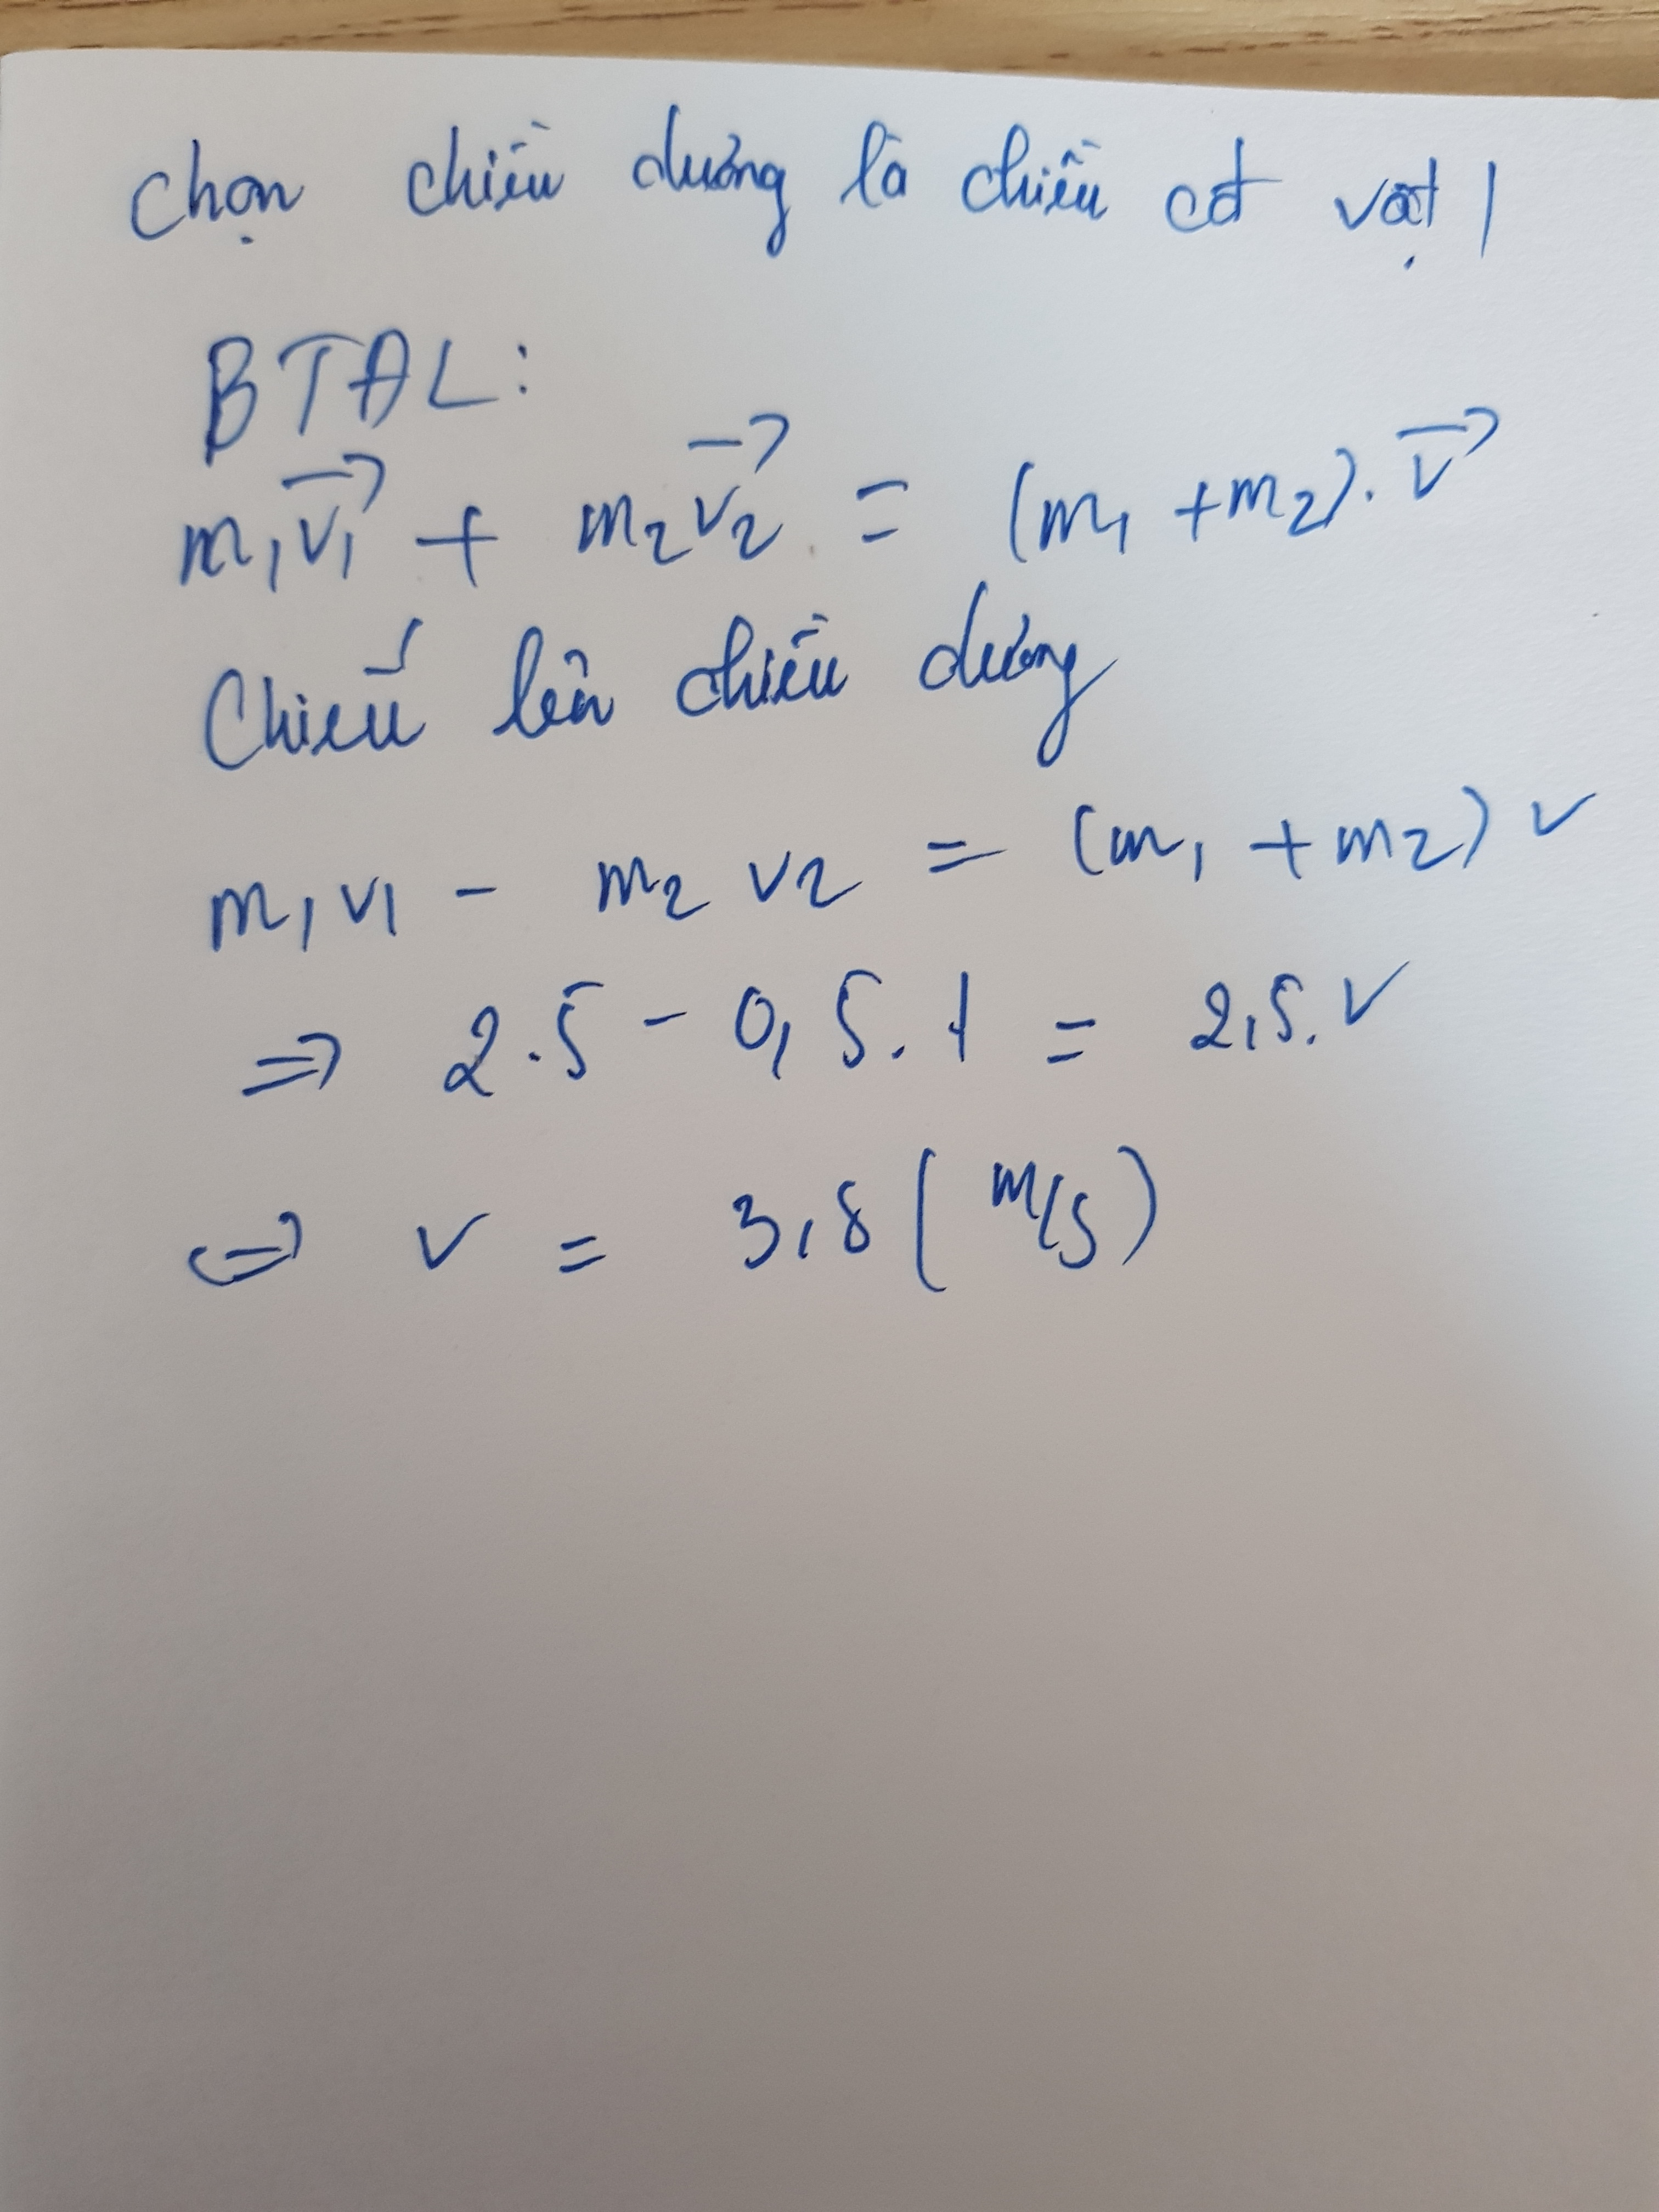 Chọn chiều dương là chiều cđ vật 1
BTĐL:
m₁v₁⃗ + m₂v₂⃗ = (m₁ + m₂).v⃗
Chiếu lên chiều dương
m₁v₁ - m₂v₂ = (m₁ + m₂)v
⇒ 2.5 - 0,5.1 = 2,5.v
⇔ v = 3,8 (m/s)